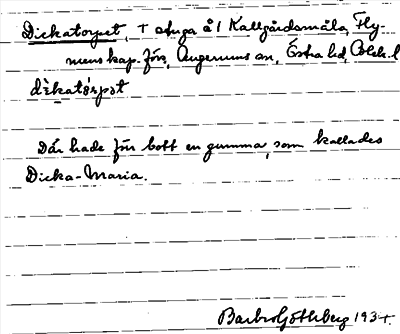 Dickatorpet, † stuga å 1 Kallgårdsmåla, Fly-
menskap. förs, Augerums sn, Östra hd, Blek. l
dìkatòrpət
Där hade förr bott en gumma, som kallades
Dicka-Maria.
Barbro Göthberg 1934.